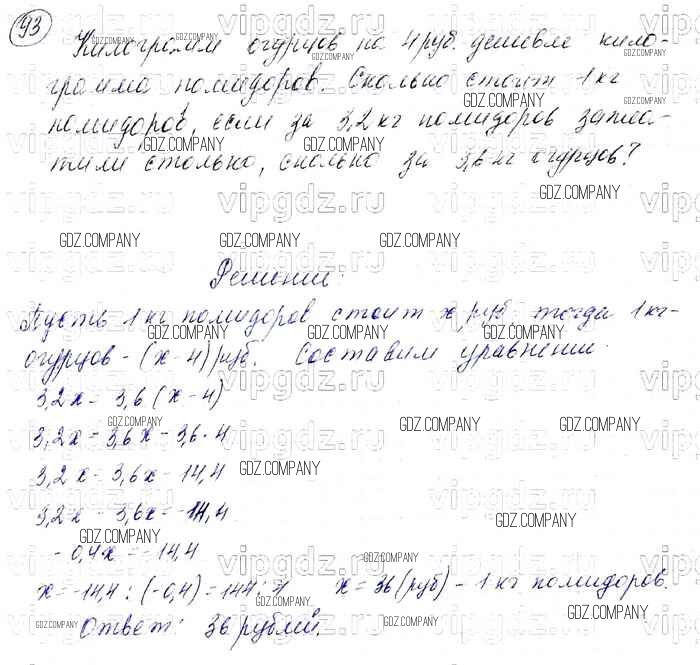 93
Килограмм огурцов на 4 руб. дешевле кило-
грамма помидоров. Сколько стоит 1 кг
помидоров, если за 3,2 кг помидоров запла-
тили столько, сколько за 3,6 кг огурцов?
Решение:
Пусть 1 кг помидоров стоит x руб тогда 1 кг-
огурцов - (x - 4) руб. Составим уравнение.
3,2x = 3,6(x - 4)
3,2x = 3,6x - 3,6·4
3,2x = 3,6x - 14,4
3,2x - 3,6x = -14,4
-0,4x = -14,4
x = -14,4 : (-0,4) = 144 : 4 x = 36 (руб) - 1 кг помидоров.
Ответ: 36 рублей.
vipgdz.ru
GDZ.COMPANY